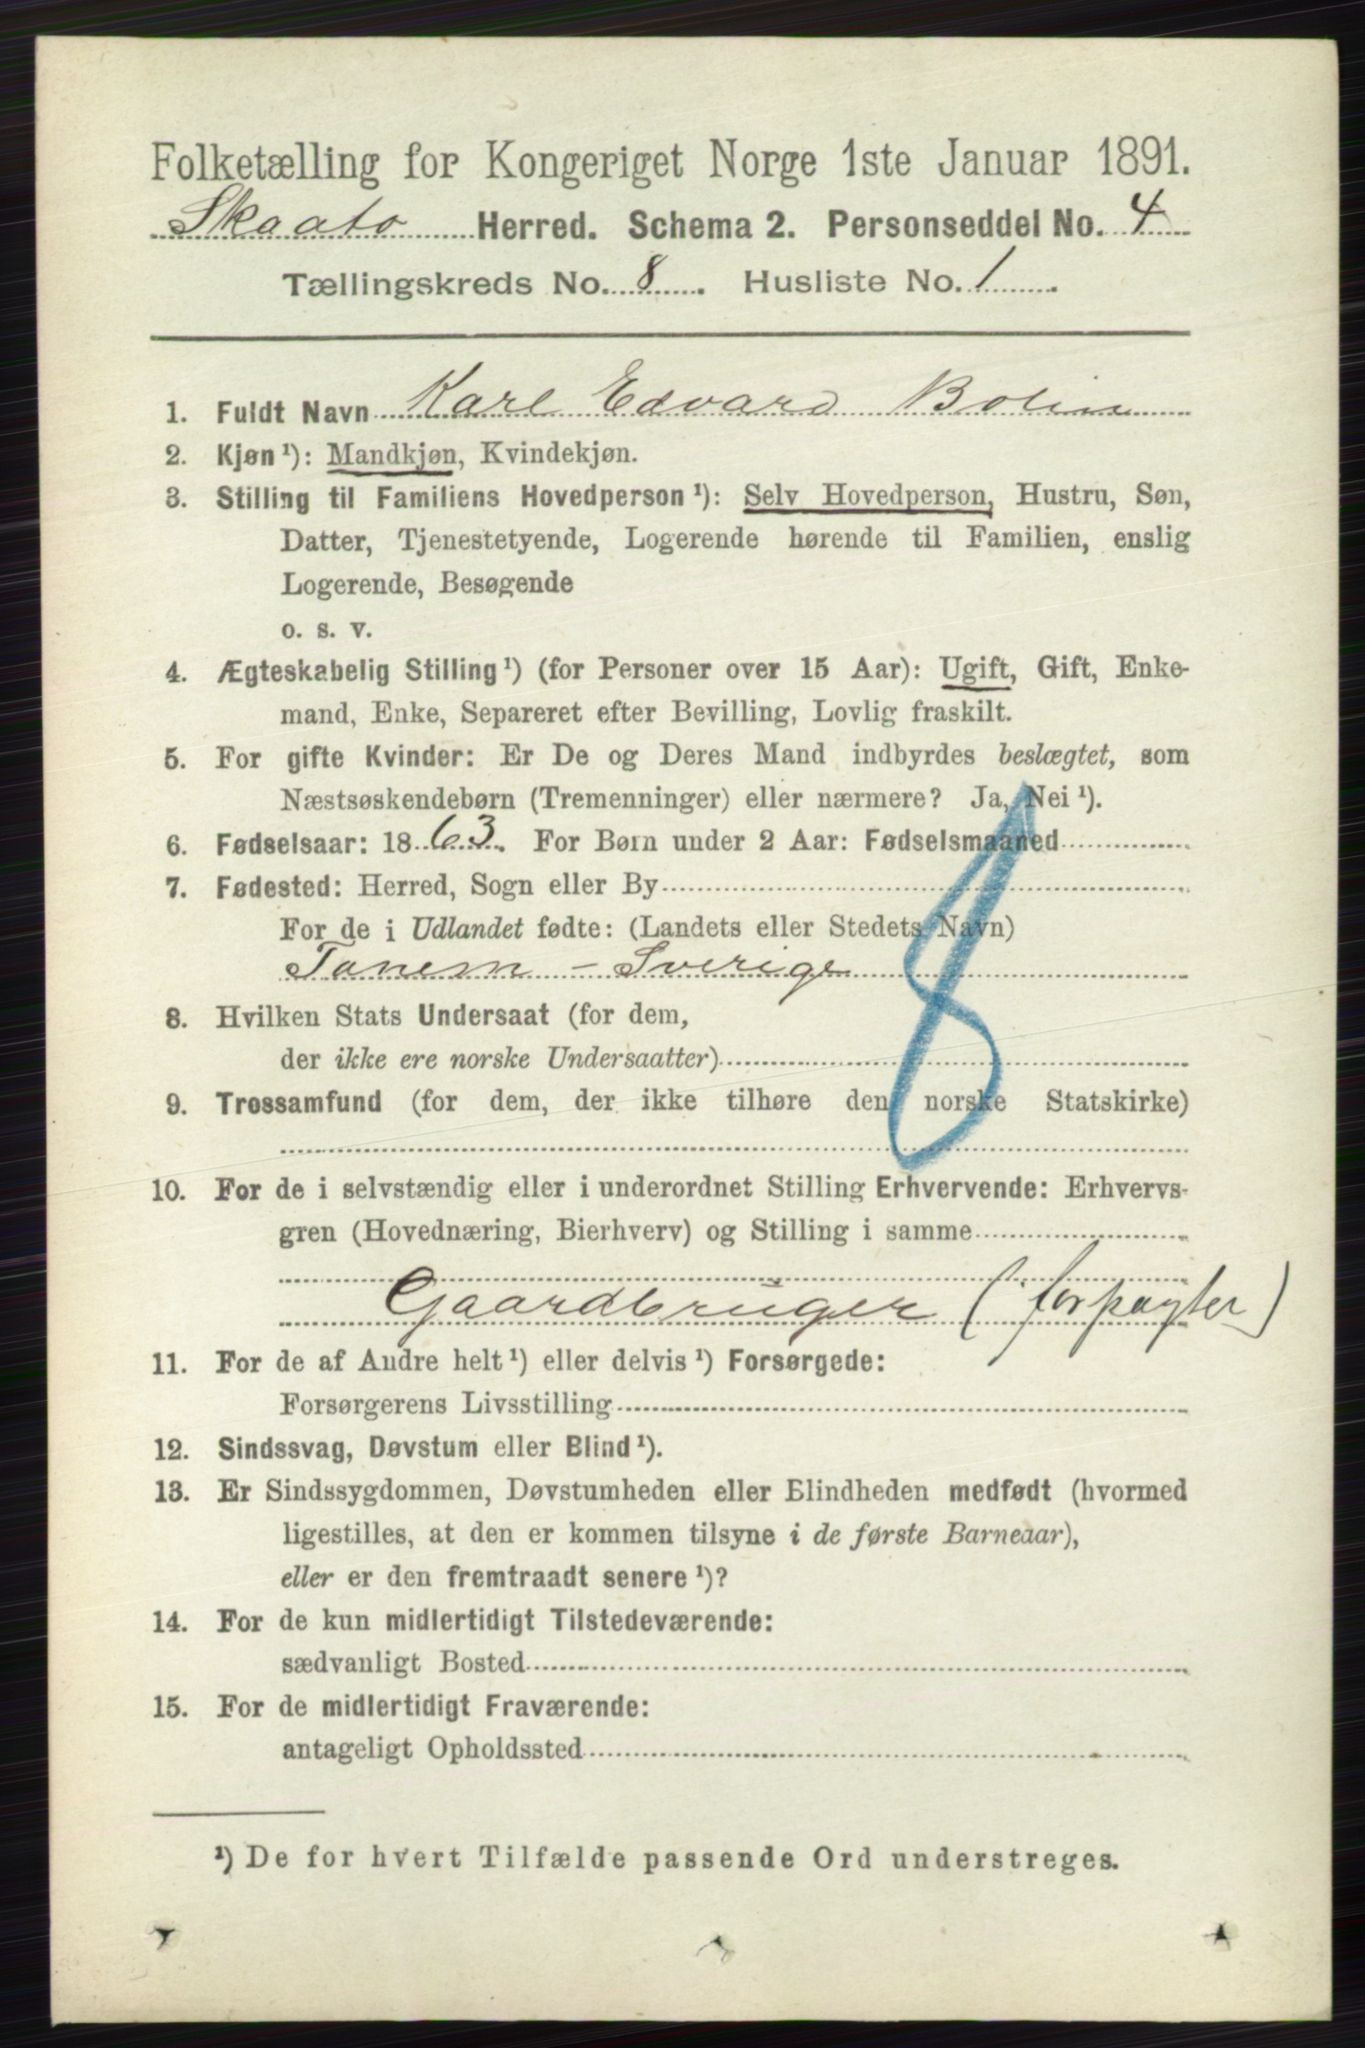 Folketælling for Kongeriget Norge 1ste Januar 1891.
Skaato Herred. Schema 2. Personseddel No. 4
Tællingskreds No. 8. Husliste No. 1.
1. Fuldt Navn Karl Edvard Bolin
2. Kjøn ¹): Mandkjøn, Kvindekjøn.
3. Stilling til Familiens Hovedperson ¹): Selv Hovedperson, Hustru, Søn,
Datter, Tjenestetyende, Logerende hørende til Familien, enslig
Logerende, Besøgende
o. s. v.
4. Ægteskabelig Stilling ¹) (for Personer over 15 Aar): Ugift, Gift, Enke-
mand, Enke, Separeret efter Bevilling, Lovlig fraskilt.
5. For gifte Kvinder: Er De og Deres Mand indbyrdes beslægtet, som
Næstsøskendebørn (Tremenninger) eller nærmere? Ja, Nei ¹).
6. Fødselsaar: 1863. For Børn under 2 Aar: Fødselsmaaned
7. Fødested: Herred, Sogn eller By
For de i Udlandet fødte: (Landets eller Stedets Navn)
Tanem - Sverige
8
8. Hvilken Stats Undersaat (for dem,
der ikke ere norske Undersaatter)
9. Trossamfund (for dem, der ikke tilhøre den norske Statskirke)
10. For de i selvstændig eller i underordnet Stilling Erhvervende: Erhvervs-
gren (Hovednæring, Bierhverv) og Stilling i samme
Gaardbruger (forpagter)
11. For de af Andre helt ¹) eller delvis ¹) Forsørgede:
Forsørgerens Livsstilling
12. Sindssvag, Døvstum eller Blind ¹).
13. Er Sindssygdommen, Døvstumheden eller Blindheden medfødt (hvormed
ligestilles, at den er kommen tilsyne i de første Barneaar),
eller er den fremtraadt senere ¹)?
14. For de kun midlertidigt Tilstedeværende:
sædvanligt Bosted
15. For de midlertidigt Fraværende:
antageligt Opholdssted
¹) De for hvert Tilfælde passende Ord understreges.